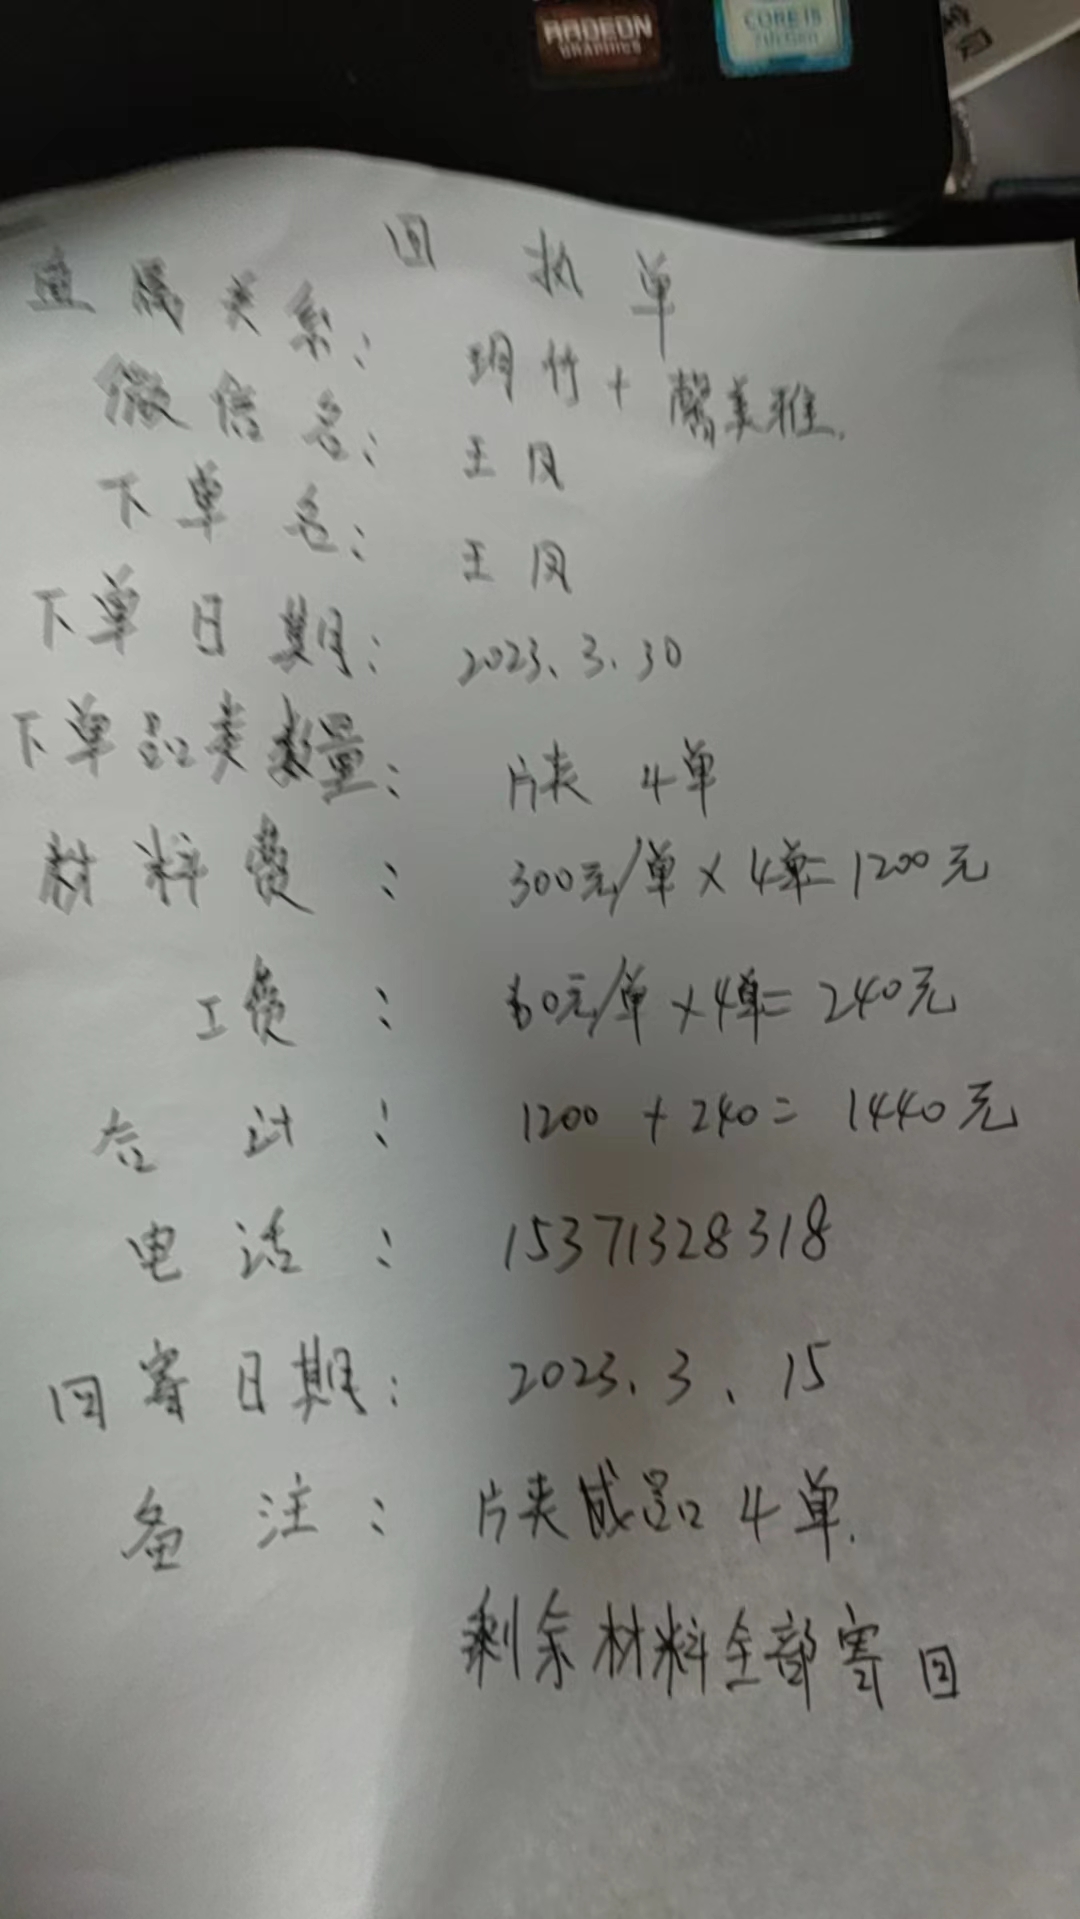 RADEON
GRAPHICS
CORE i5
7th Gen
回执单
直属关系: 玥竹+馨美雅.
微信名: 王凤
下单名: 王凤
下单日期: 2023.3.30
下单品类数量: 片夹 4单
材料费: 300元/单×4单=1200元
工费: 60元/单×4单=240元
合计: 1200+240=1440元
电话: 15371328318
回寄日期: 2023.3.15
备注: 片夹成品4单.
剩余材料全部寄回